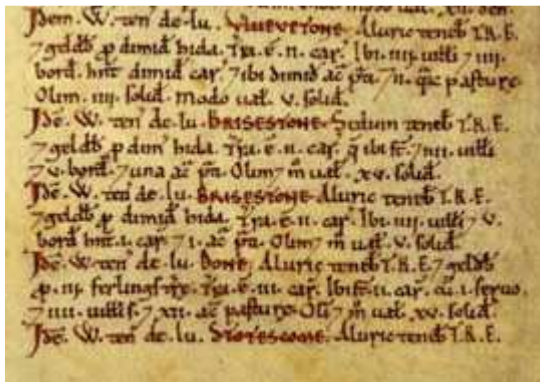 Idem. W. ten de. lu. VLVEVETONE. Aluric teneb T.R.E.
7 geldb p dimid hida. Tra. ē. ii. car. Ibi. iiii. uilli 7 iii.
bord. hnt dimid car. 7 ibi dimid ac pti. 7 ii. qc pasture.
Olim. iiii. solid. Modo ual. v. solid.
Idē. W. ten de. lu. BRISESTONE. Seduin teneb T.R.E.
7 geldb p dim hida. Tra. ē. ii. car. q ibi st. 7 iiii. uilli
7 v. bord. 7 una ac pti. Olim 7 m ual. xv. solid.
Idē. W. ten de. lu. BRISESTONE. Aluric teneb T.R.E.
7 geldb p dimid hida. Tra. ē. ii. car. Ibi. iiii. uilli 7 v.
bord hnt. i. car 7 i. ac pti. Olim 7 m ual. v. solid.
Idē. W. ten de. lu. DONE. Aluric teneb T.R.E. 7 geldb
p. iii. ferlings tre. Tra. ē. iii. car. Ibi st. ii. car. cū. i. seruo.
7 iiii. uillis. 7 xii. ac pasture. Oli 7 m ual. xv. solid.
Idē. W. ten de. lu. Aluric teneb T.R.E.